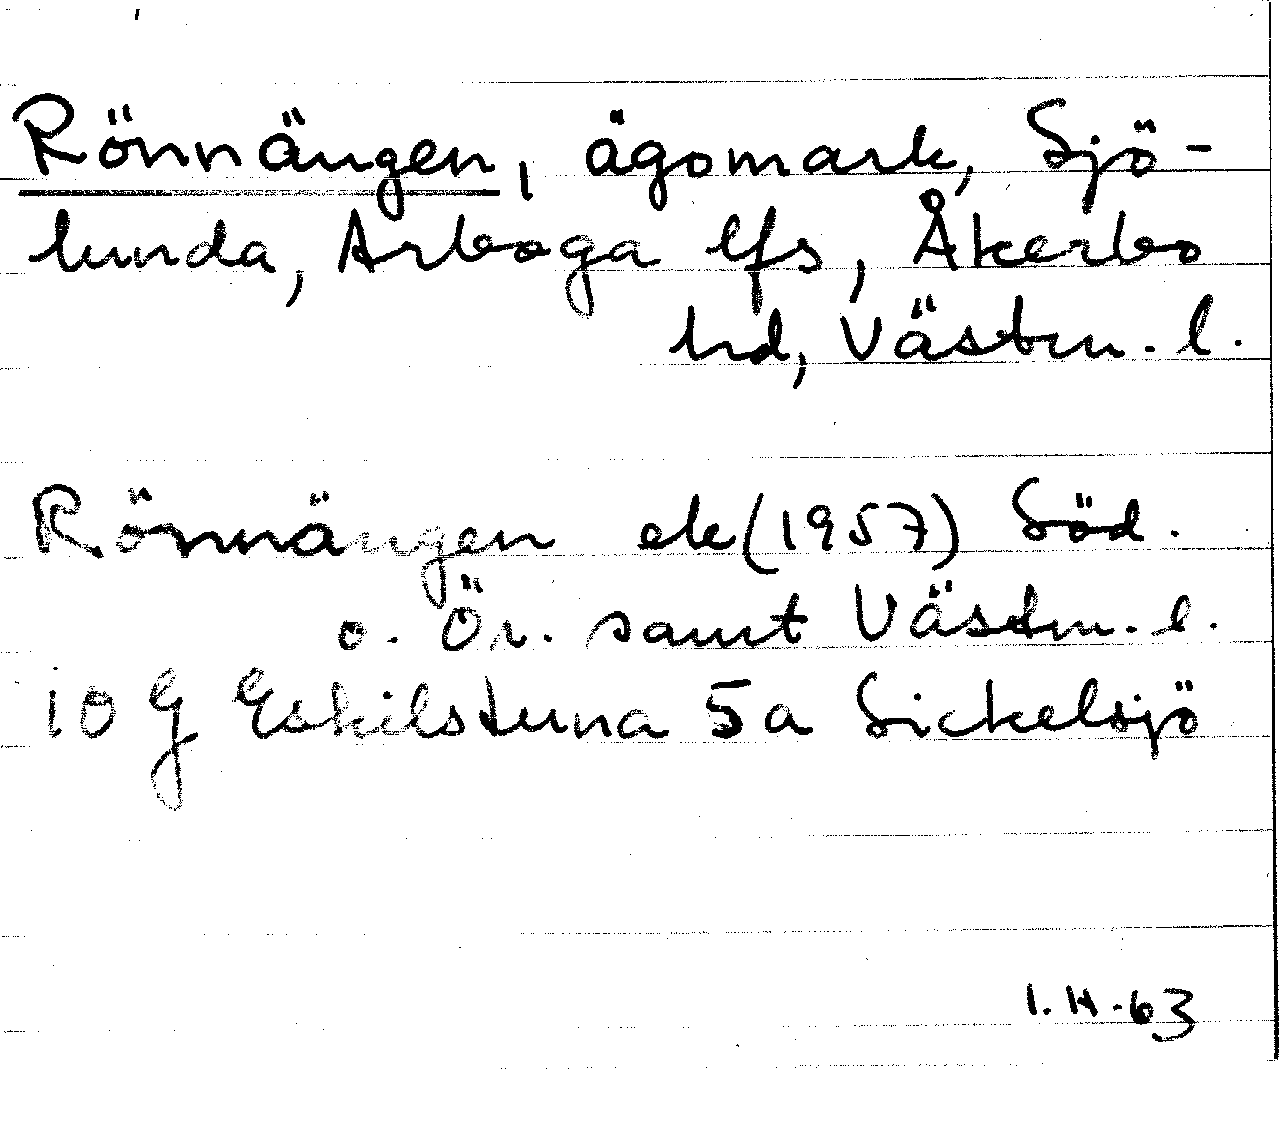 Rönnängen, ägomark, Sjö-
lunda, Arboga lfs, Åkerbo
hd, Västm. l.
Rönnängen ek (1957) Söd.
o. Ör. samt Västm. l.
10 G Eskilstuna 5a Sickelsjö
I. H. 63